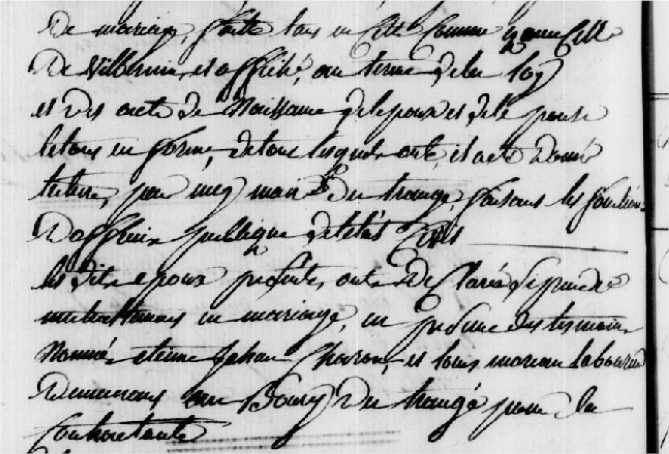 De mariage, faitte tans en cette Commune qu'en celle
De Villevieux, et affiché, au terme de la loy
et des acte de Naissance de lepoux et de le pouse
le tous en forme, de tous lesquels acte, il a été Donné
lecture, par moy maire Du trangé, faisant les fonction
D'officier publique de letat Civil
les dits epoux presents, ont Declaré se prendre
mutuellement en mariage, en presence des temoins
Nommé etienne Charon, et louis moreau laboureur
Demeurant au Bourg Du trangé pour la
Contractante